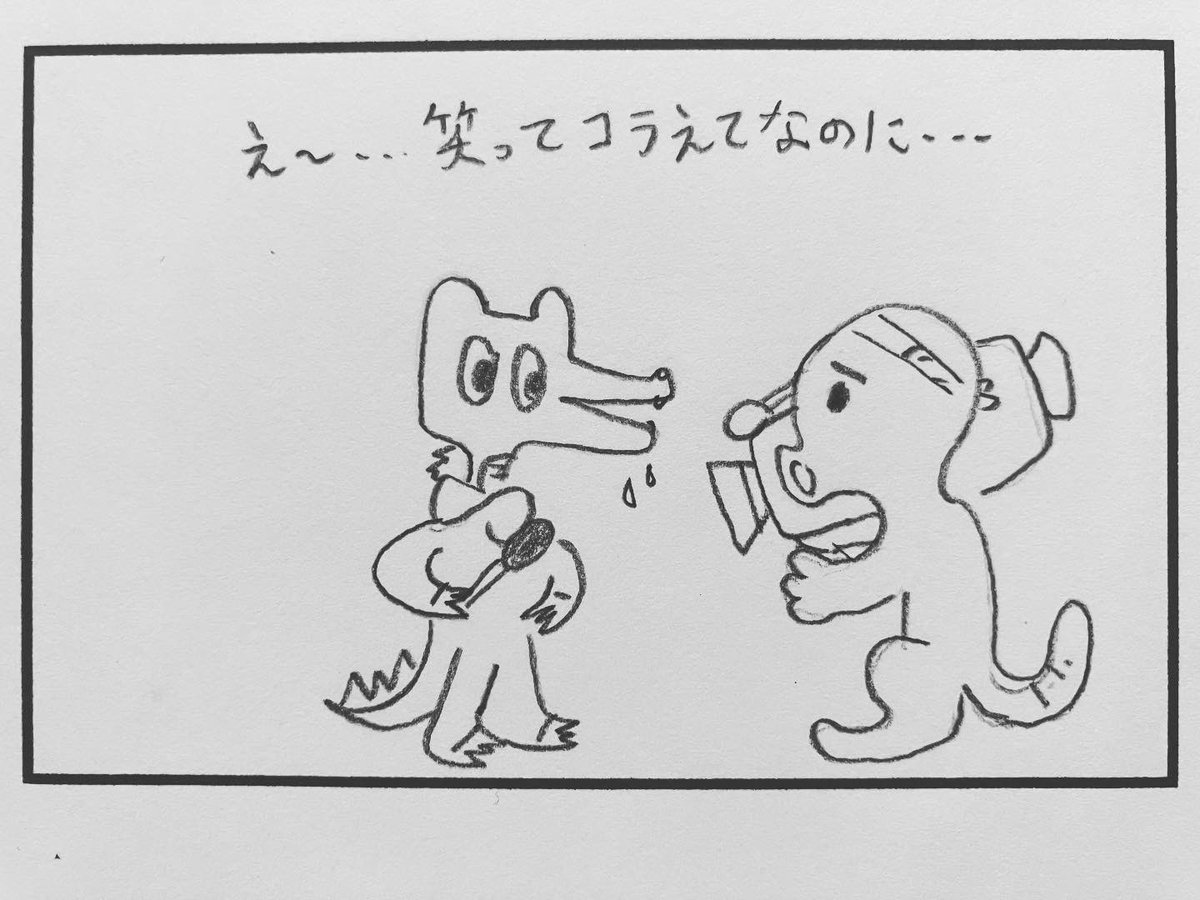 え〜... 笑ってコラえてなのに---